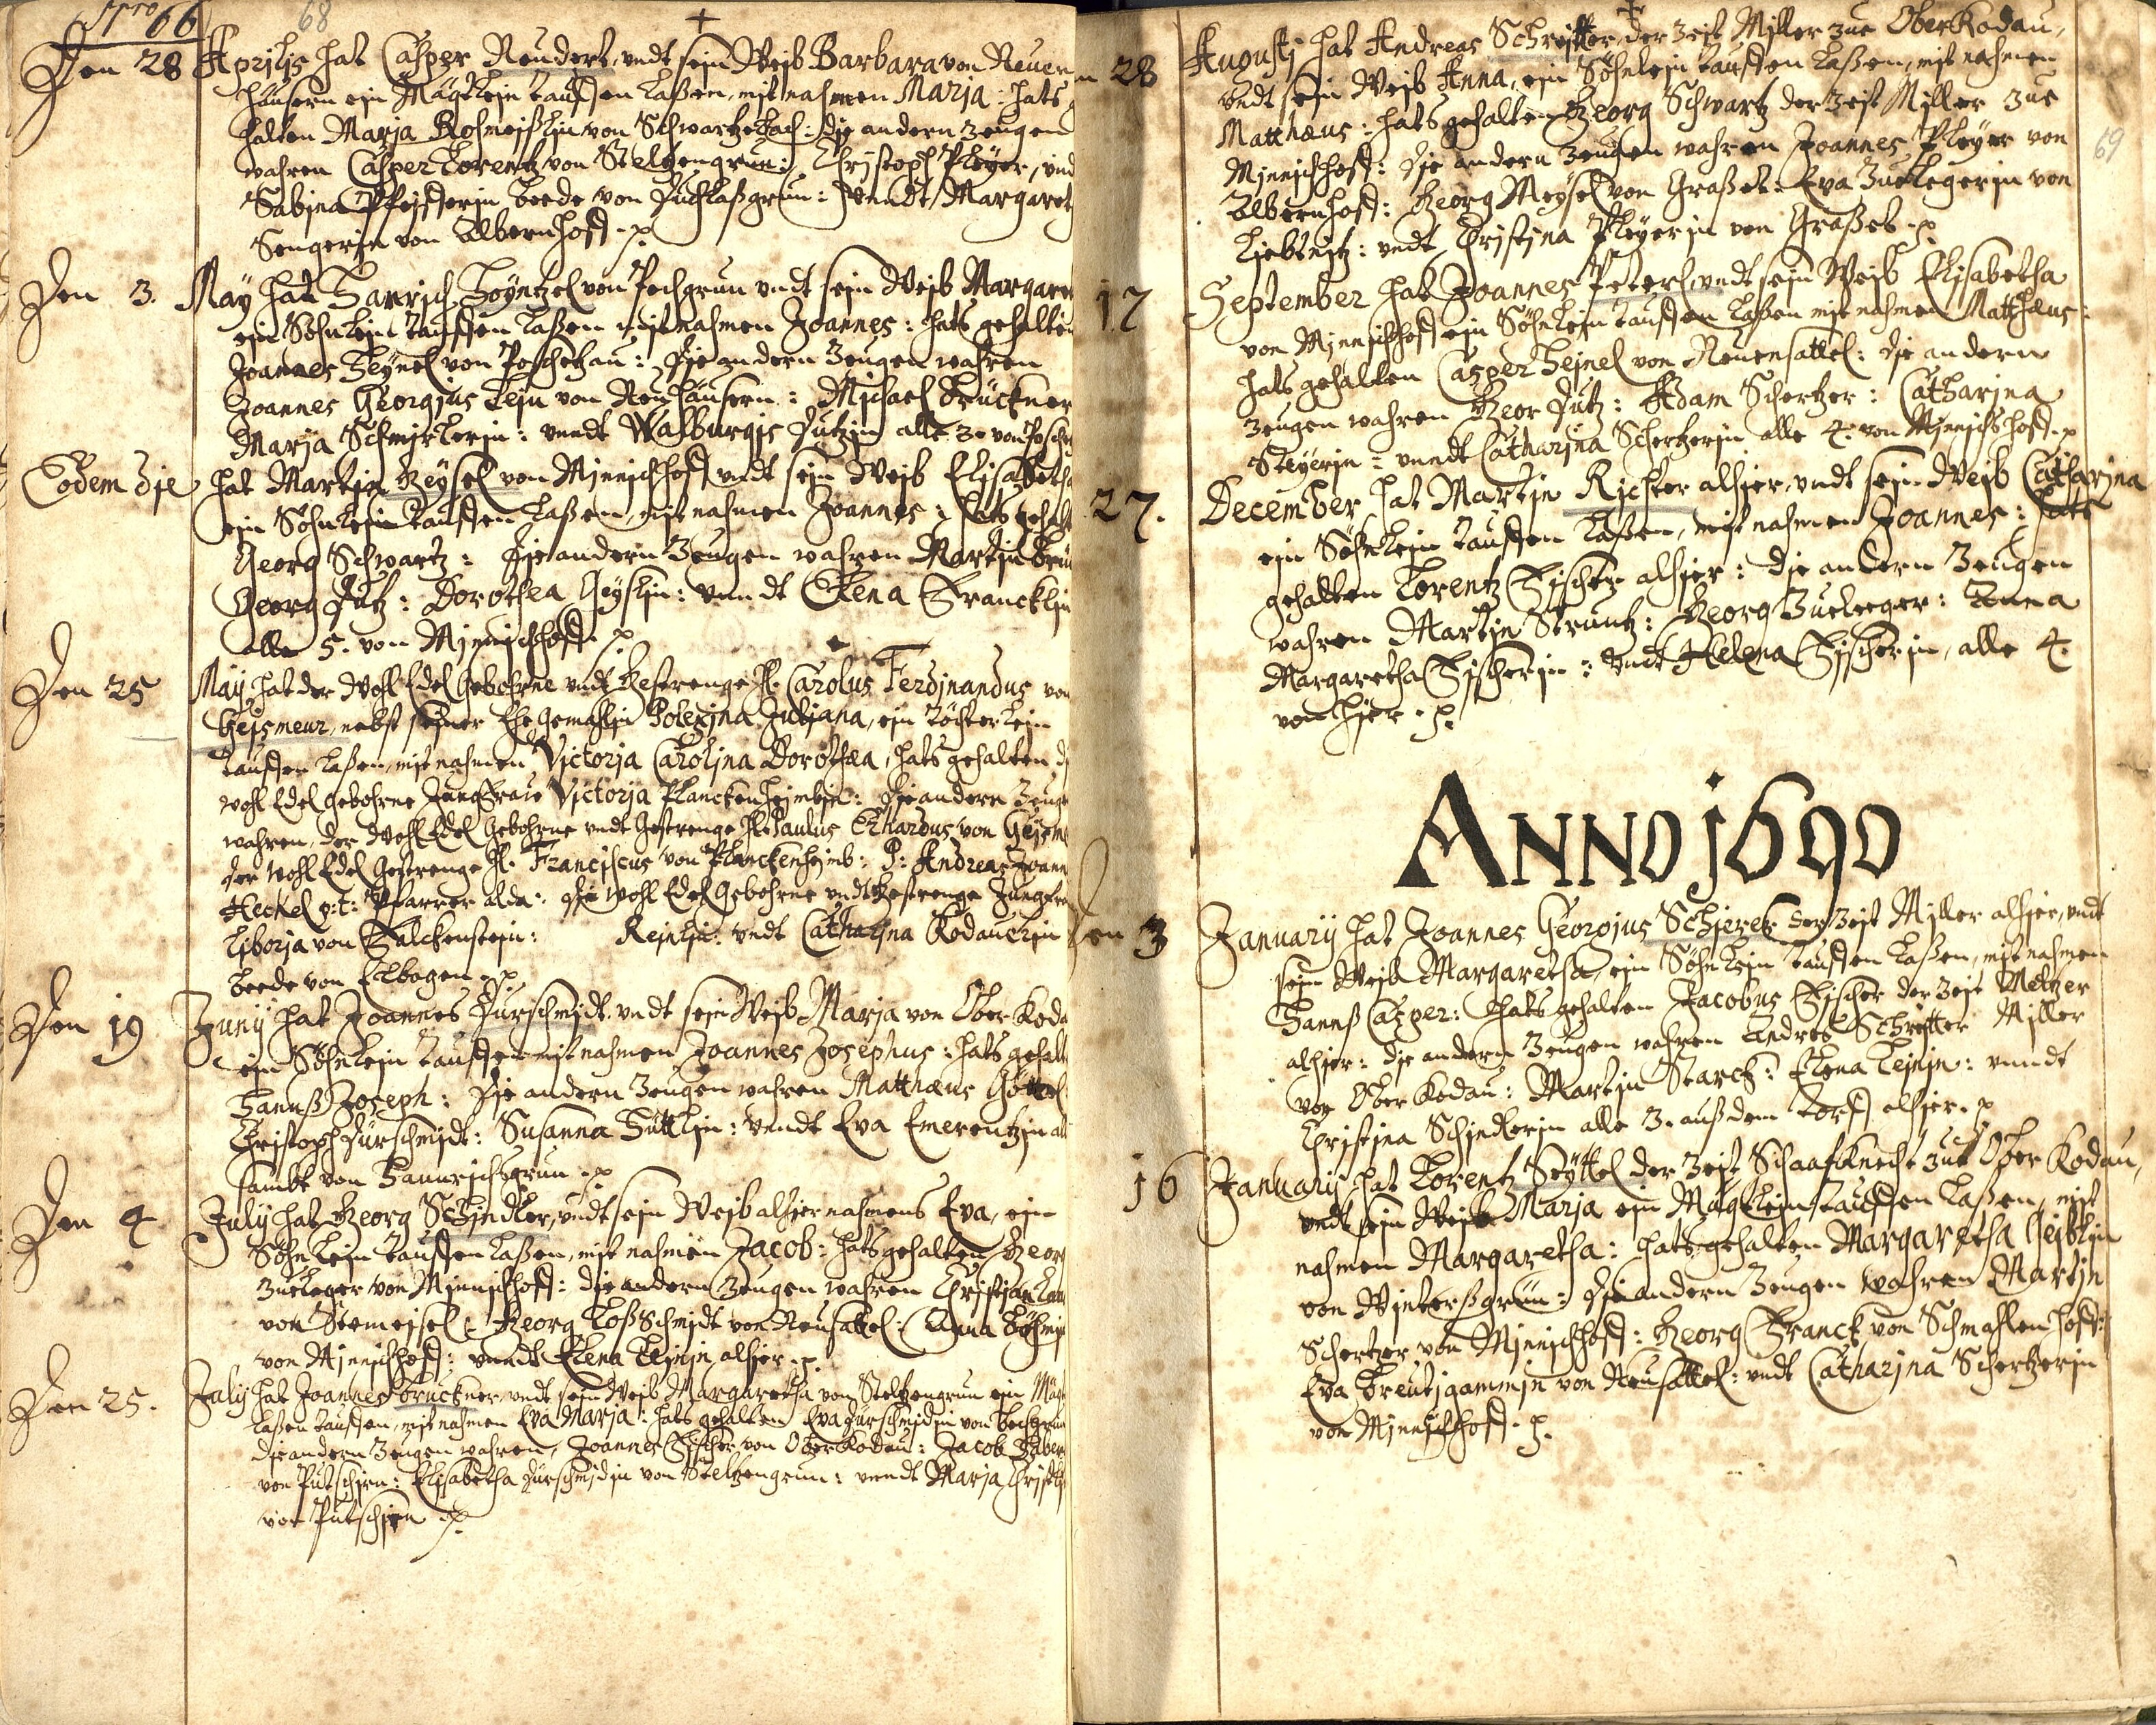 66
68
Den 28 Aprilis hat Casper Reudert, undt sein Weib Barbara von Neuen
häusern ein Mägtlein tauffen laßen, mit nahmen Maria: hats
halten Maria von Schwartzebach: die andern zeugen
wahren Casper Lorentz von Steltzengrun: Christoph Pleyer, und
Sabina beede von undt Margaret
Sengerin von Albernhoff. p
Den 3. May hat Hanrich Höyntzel von Pechgrun undt sein Weib Margare
ein Söhnlein tauffen laßen mit nahmen Joannes: hats gehalten
Joannes Heynel von Poschetzau: die andern Zeugen wahren
Joannes Georgius Lein von Neuhäusern: Michael Brückner
Maria Schmirlerin: unndt Walburgis Dutzin alle 3. von
Eodem die hat Martin Geysel von Minnichhoff undt sein Weib Elisabetha
ein Söhnlein tauffen laßen, mit nahmen Joannes: hats gehal
Georg Schwartz: die andern Zeugen wahren Martin
Georg Dutz: Dorothea Geyslin: unndt Elena Francklin
alle 5. von Minnichhoff. p
Den 25 May hat der Wohl Edel Gebohrne undt Gestrenge H. Carolus Ferdinandus von
Geismeur, nebst seiner Ehe Gemahlin Polexina Juliana, ein Töchterlein
tauffen laßen, mit nahmen Victoria Carolina Dorothea, hats gehalten d
wohl Edel gebohrne Jungfraue Victoria Planckenheimbin: die andern Zeug
wahren, der Wohl Edel Gebohrne undt Gestrenge H. Paulus Erhardus von Geism
der Wohl Edel Gestrenge H. Franciscus von Planckenheimb: P: Andreas Joann
Heckel p:t: Pfarrer alda: die wohl Edel Gebohrne undt Gestrenge Jungfr
Liboria von Falckenstein: Reinlin: undt Catharina Kodauerin
beede von Elbogen. p
Den 19 Juny hat Joannes Durschmidt undt sein Weib Maria von Ober Koda
ein Söhnlein tauffen mit nahmen Joannes Josephus: hats gehalt
Hannß Joseph: die andern Zeugen wahren Matthæus
Christoph Dürschmidt: Susanna Hüttlin: unndt Eva Emerentzin
sambt von Hannrichsgrun. p
Den 4 July hat Georg Schindler, undt sein Weib alhier nahmens Eva, ein
Söhnlein tauffen laßen, mit nahmen Jacob: hats gehalten Georg
Zuckleger von Minnichhoff: die andern Zeugen wahren Christian
von Stemeisel: Georg Loßschmidt von Neusatzel: Anna Böhmin
von Minnichhoff: unndt Elena Leinin alhier. p
Den 25. July hat Joannes Bruckner, undt sein Weib Margaretha von Steltzengrun ein Mäg
laßen tauffen, mit nahmen Eva Maria: hats gehalten Eva Durschmidin von Bechgrun
die andern Zeugen wahren, Joannes Fischer von Ober Kodau: Jacob
von Putschirn: Elisabetha Dürschmidin von Steltzengrun: unndt Maria
von Putschirn. p
69
28 Augusti hat Andreas Schritter, der Zeit Miller zue Ober Kodau,
undt sein Weib Anna, ein Söhnlein tauffen laßen, mit nahmen
Matthæus: hats gehalten Georg Schwartz der Zeit Miller zue
Minnichhoff: die andern Zeugen wahren Joannes Pleyer von
Albernhoff: Georg Meysel von Graßet: Eva Zucklegerin von
undt Christina Pleyerin von Graßet. p
17 September hat Joannes Peterl, undt sein Weib Elisabetha
von Minnichhoff ein Söhnlein tauffen laßen mit nahmen Matthæus:
hats gehalten Casper Heinel von Neuensattel: die andern
Zeugen wahren Geor Dutz: Adam Schertzer: Catharina
Steyerin: unndt Catharina Schertzerin alle 4. von Minnichhoff. p
27. December hat Martin Richter alhier, undt sein Weib Catharina
ein Söhnlein tauffen laßen, mit nahmen Joannes: hats
gehalten Lorentz Fischer alhier: die andern Zeugen
wahren Martin Struntz: Georg Zuckleger: Anna
Margaretha Fischerin: undt Helena Fischerin, alle 4.
von hier. p.
ANNO 1690
Den 3 January hat Joannes Georgius Schierek der Zeit Miller alhier, undt
sein Weib Margaretha, ein Söhnlein tauffen laßen, mit nahmen
Hannß Casper: hats gehalten Jacobus Fischer der Zeit Meltzer
alhier: die andern Zeugen wahren Andres Schritter Miller
von Ober Kodau: Martin Starck: Elena Leinin: unndt
Christina Schindlerin alle 3. auß dem Dorff alhier. p
16 January hat Lorentz Seyttel der Zeit Schaafknecht zue Ober Kodau,
undt sein Weib Maria ein Mägtlein tauffen laßen, mit
nahmen Margaretha: hats gehalten Margaretha
von Wintersgrün: die andern Zeugen wahren Martin
Schertzer von Minnichhoff: Georg Franck von Schmahlenhoff:
Eva Breutigammin von Neusattel: undt Catharina Schertzerin
von Minnichhoff. p.